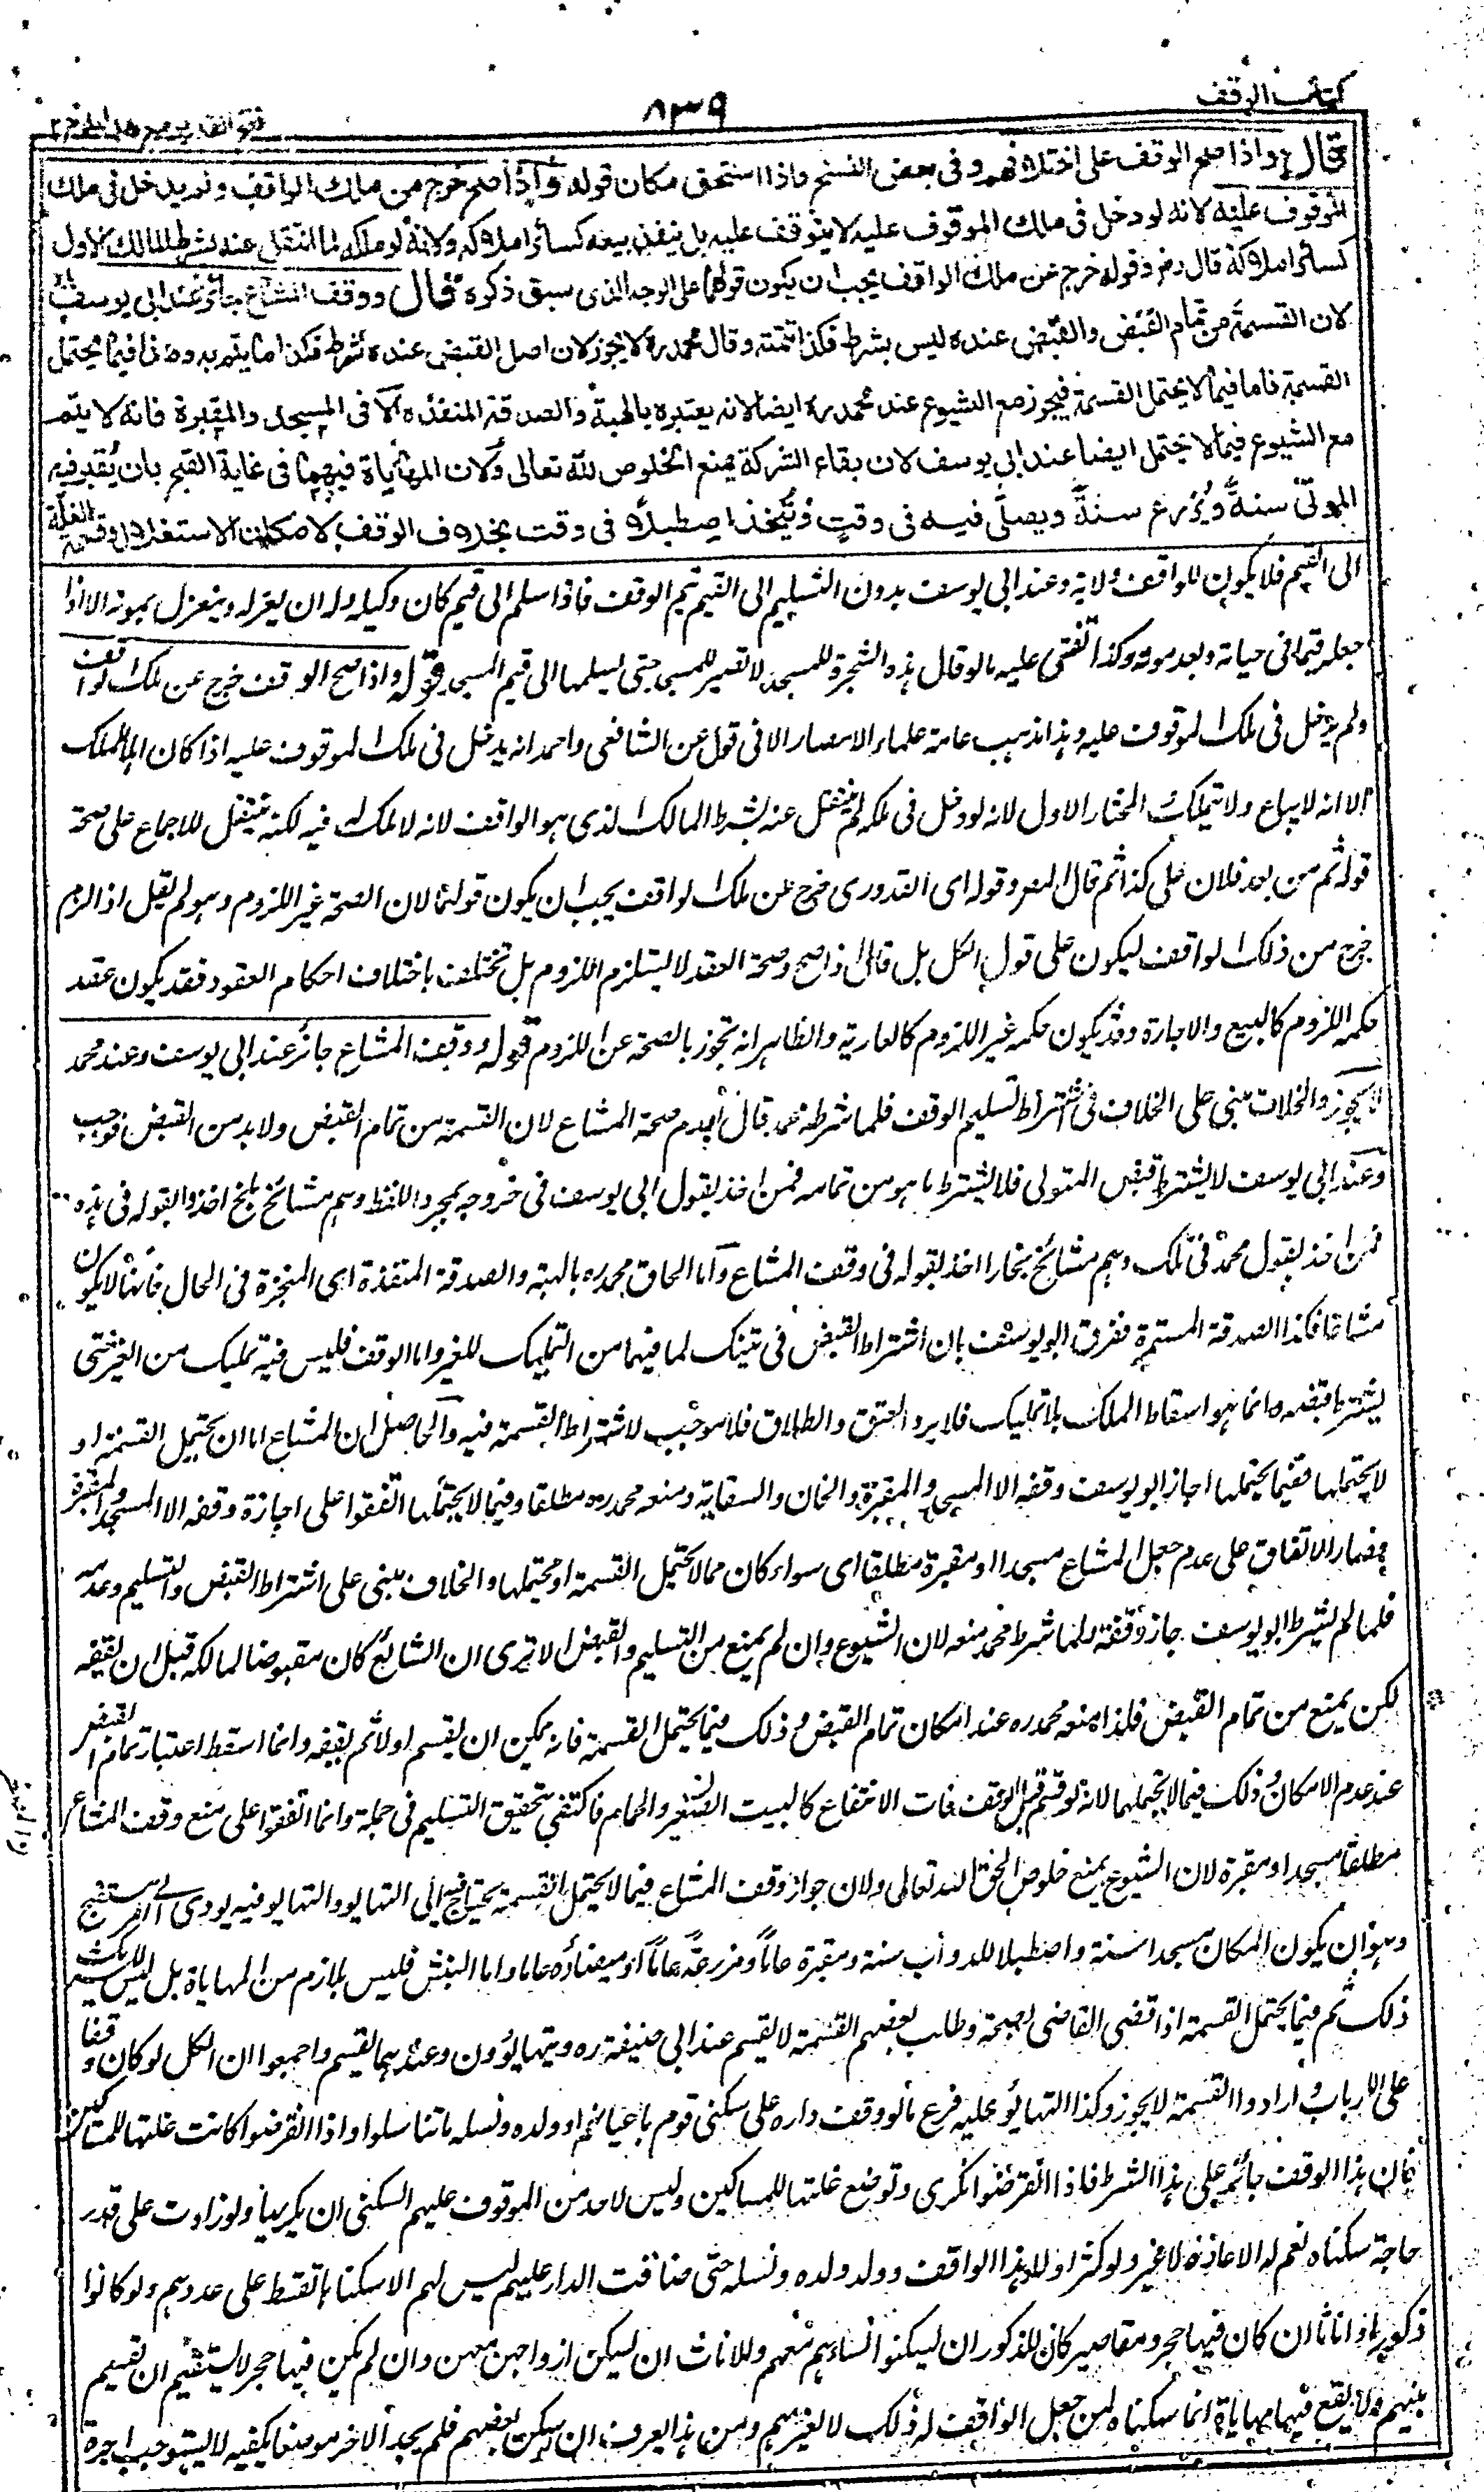 كتاب الوقف
٨٣٩
فتح القدير مع هداية ج ٢
قال واذا صح الوقف على اختلافهم وفى بعض النسخ واذا استحق مكان قوله واذا صح خرج من ملك الواقف ولم يدخل فى ملك
الموقوف عليه لانه لو دخل فى ملك الموقوف عليه لا يتوقف عليه بل ينفذ بيعه كسائر املاكه ولانه لو ملكه لما انتقل عنه بشرط المالك الاول
كسائر املاكه قال رضـ وقوله خرج عن ملك الواقف يجب ان يكون قولهما على الوجه الذى سبق ذكره قال ووقف المشاع جائز عند ابى يوسف
لان القسمة من تمام القبض والقبض عنده ليس بشرط فكذا تتمته وقال محمد ره لا يجوز لان اصل القبض عنده شرط فكذا ما يتم به وهذا فيما يحتمل
القسمة فاما فيما لا يحتمل القسمة فيجوز مع الشيوع عند محمد ره ايضا لانه يعتبره بالهبة والصدقة المنفذه الا فى المسجد والمقبرة فانه لا يتم
مع الشيوع فيما لا يحتمل ايضا عند ابى يوسف لان بقاء الشركة يمنع الخلوص لله تعالى ولان المهاياة فيهما فى غاية القبح بان يقبر فيه
الموتى سنة ويزرع سنة ويصلى فيه فى وقت ويتخذ اصطبلا فى وقت بخلاف الوقف لامكان الاستغلال وقسمة الغلة
الى القيم فلا يكون للواقف ولاية وعند ابى يوسف بدون التسليم الى القيم تم الوقف فاذا سلم الى قيم كان وكيله وله ان يعزله وينعزل بموته الا اذا
جعله قيما فى حياته وبعد موته وكذا تفتى عليه ما لو قال هذه الشجرة للمسجد لا تصير للمسجد حتى يسلمها الى قيم المسجد قوله واذا صح الوقف خرج عن ملك الواقف
ولم يدخل فى ملك الموقوف عليه وهذا مذهب عامة علماء الامصار الا فى قول عن الشافعى واحمد انه يدخل فى ملك الموقوف عليه اذا كان اهلا للملك
الا انه لا يباع ولا يتملك المختار الاول لانه لو دخل فى ملكه لم ينتقل عنه بشرط المالك الذى هو الواقف لانه لا ملك له فيه لكنه ينتقل للاجماع على صحة
قوله ثم من بعد فلان على كذا ثم قال المصـ وقوله اى القدورى خرج عن ملك الواقف يجب ان يكون قولهما لان الصحة غير اللزوم وهو لم يقل اذا لزم
خرج من ذلك الواقف ليكون على قول الكل بل قال اذا صح وصحة العقد لا يستلزم اللزوم بل تختلف باختلاف احكام العقود فقد يكون عقد
حكمه اللزوم كالبيع والاجارة وقد يكون حكمه غير اللزوم كالعارية والظاهر انه تجوز بالصحة عن اللزوم قوله ووقف المشاع جائز عند ابى يوسف وعند محمد
لا يجوز والخلاف مبنى على الخلاف فى اشتراط تسليم الوقف فلما شرطه محمد قال بعدم صحة المشاع لان القسمة من تمام القبض ولا بد من القبض فوجب
وعند ابى يوسف لا يشترط قبض المتولى فلا يشترط ما هو من تمامه فمن اخذ بقول ابى يوسف فى خروجه بمجرد اللفظ وهم مشائخ بلخ اخذوا بقوله فى هذه
فمن اخذ بقول محمد فى تلك وهم مشائخ بخارا اخذ بقوله فى وقف المشاع واما الحاق محمد ره بالهبة والصدقة المنفذة اى المنجزة فى الحال فانها لا يكون
مشاعا فكذا الصدقة المستمرة ففرق ابو يوسف بان اشتراط القبض فى تينك لما فيهما من التمليك للغير واما الوقف فليس فيه تمليك من الغير حتى
يشترط قبضه وانما هو اسقاط الملك بلا تمليك فلا يرد العتق والطلاق فلا موجب لاشتراط القسمة فيه والحاصل ان المشاع اما ان يحتمل القسمة او
لا يحتملها ففيما يحتملها اجاز ابو يوسف وقفه الا المسجد والمقبرة والخان والسقاية ومنعه محمد ره مطلقا وفيما لا يحتملها اتفقوا على اجازة وقفه الا المسجد والمقبرة
فصار الاتفاق على عدم جعل المشاع مسجدا او مقبرة مطلقا اى سواء كان مما لا يحتمل القسمة او يحتملها والخلاف مبنى على اشتراط القبض والتسليم وعدمه
فلما لم يشترط ابو يوسف جاز وقفه ولما شرط محمد منعه لان الشيوع وان لم يمنع من التسليم والقبض الا ترى ان الشائع كان مقبوضا لمالكه قبل ان يقفه
لكن يمنع من تمام القبض فلذا منعه محمد ره عند امكان تمام القبض وذلك فيما يحتمل القسمة فانه يمكن ان يقسم اولا ثم يقفه وانما اسقط اعتبار تمام القبض
عند عدم الامكان وذلك فيما لا يحتملها لانه لو قسم قبل الوقف فات الانتفاع كالبيت الصغير والحمام فاكتفى بتحقيق التسليم فى جملة وانما اتفقوا على منع وقف المشاع
مطلقا مسجدا او مقبرة لان الشيوع يمنع خلوص الحق لله تعالى ولان جواز وقف المشاع فيما لا يحتمل القسمة يحتاج فيه الى التهايو والتهايو فيه يودى الى امر مستقبح
وهو ان يكون المكان مسجدا سنة واصطبلا للدواب سنة ومقبرة عاما ومزرعة عاما او ميضأة عاما واما النبش فليس بلازم من المهاياة بل ليس للشريك
ذلك ثم فيما يحتمل القسمة اذا قضى القاضى بصحته وطلب بعضهم القسمة لا يقسم عند ابى حنيفة ره ويتهايؤون وعندهما يقسم واجمعوا ان الكل لو كان وقفا
على الارباب وارادوا القسمة لا يجوز وكذا التهايؤ عليه فرع ما لو وقف داره على سكنى قوم باعيانهم او ولده ونسله ما تناسلوا واذا انقرضوا كانت غلتها للمساكين
فان هذا الوقف جائز على هذا الشرط فاذا انقرضوا تكرى وتوضع غلتها للمساكين وليس لاحد من الموقوف عليهم السكنى ان يكريها ولو زادت على قدر
حاجة سكناه نعم له الاعارة لا غير ولو كثر اولاد هذا الواقف وولد ولده ونسله حتى ضاقت الدار عليهم ليس لهم الا سكناها تقسط على عددهم ولو كانوا
ذكورا واناثا ان كان فيها حجر ومقاصير كان للذكور ان يسكنوا نساءهم معهم وللاناث ان يسكن ازواجهن معهن وان لم يكن فيها حجر لا يستقيم ان تقسيم
بينهم ولا يقع فيها مهاياة انما سكناه لمن جعل الواقف له ذلك لا لغيرهم ومن هذا يعرف ان لو سكن بعضهم فلم يجد الاخر موضعا يكفيه لا يستوجب اجرة